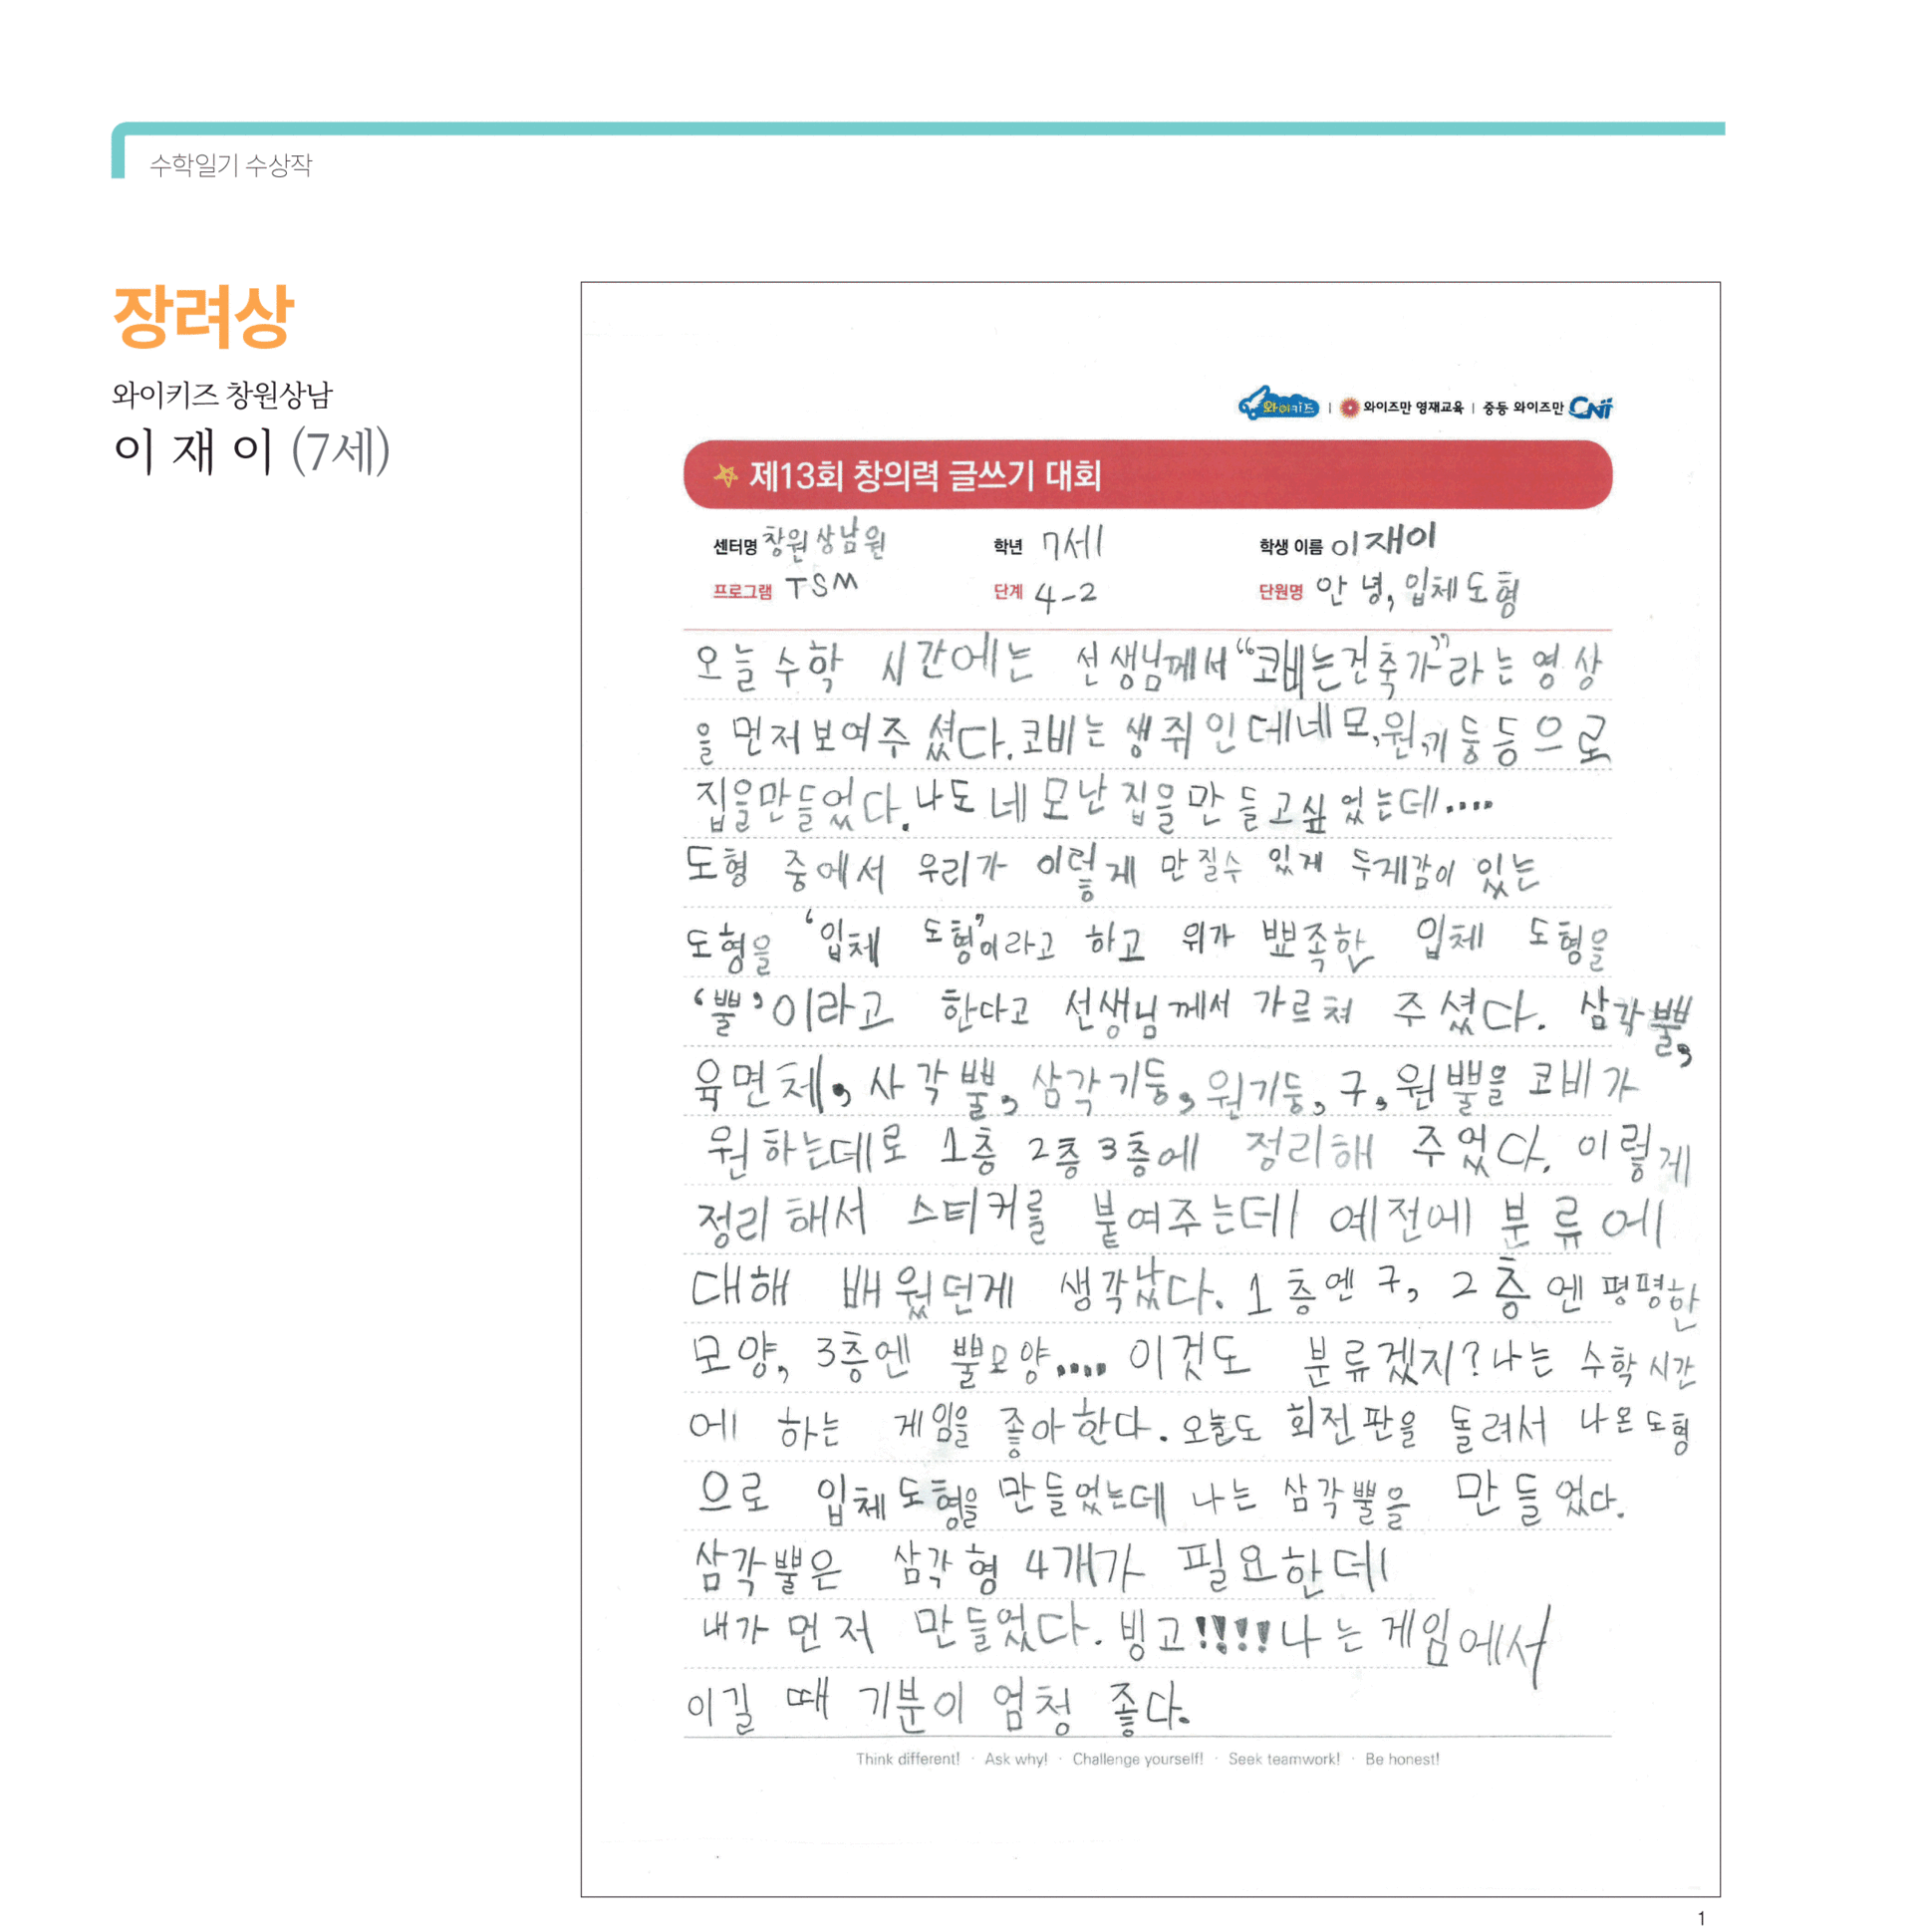 수학일기 수상작
장려상
와이키즈 창원상남
이 재 이 (7세)
와이키즈 | 와이즈만 영재교육 | 중등 와이즈만 CNii
제13회 창의력 글쓰기 대회
센터명 창원상남원 학년 7세 학생 이름 이재이
프로그램 TSM 단계 4-2 단원명 안녕, 입체도형
오늘 수학 시간에는 선생님께서 “코비는건축가”라는 영상
을 먼저보여주셨다. 코비는 생쥐인데네모,원,기둥등으로
집을만들었다. 나도 네모난 집을만들고싶었는데....
도형 중에서 우리가 이렇게 만질수 있게 두께감이 있는
도형을 ‘입체 도형’이라고 하고 위가 뾰족한 입체 도형을
‘뿔’이라고 한다고 선생님께서 가르쳐 주셨다. 삼각뿔,
육면체, 사각뿔, 삼각기둥, 원기둥, 구, 원뿔을 코비가
원하는데로 1층 2층 3층에 정리해 주었다. 이렇게
정리해서 스티커를 붙여주는데 예전에 분류에
대해 배웠던게 생각났다. 1층엔 구, 2층엔 평평한
모양, 3층엔 뿔모양.... 이것도 분류겠지? 나는 수학 시간
에 하는 게임을 좋아한다. 오늘도 회전판을 돌려서 나온 도형
으로 입체도형을 만들었는데 나는 삼각뿔을 만들었다.
삼각뿔은 삼각형 4개가 필요한데
내가 먼저 만들었다. 빙고!!!! 나는 게임에서
이길 때 기분이 엄청 좋다.
Think different! · Ask why! · Challenge yourself! · Seek teamwork! · Be honest!
1